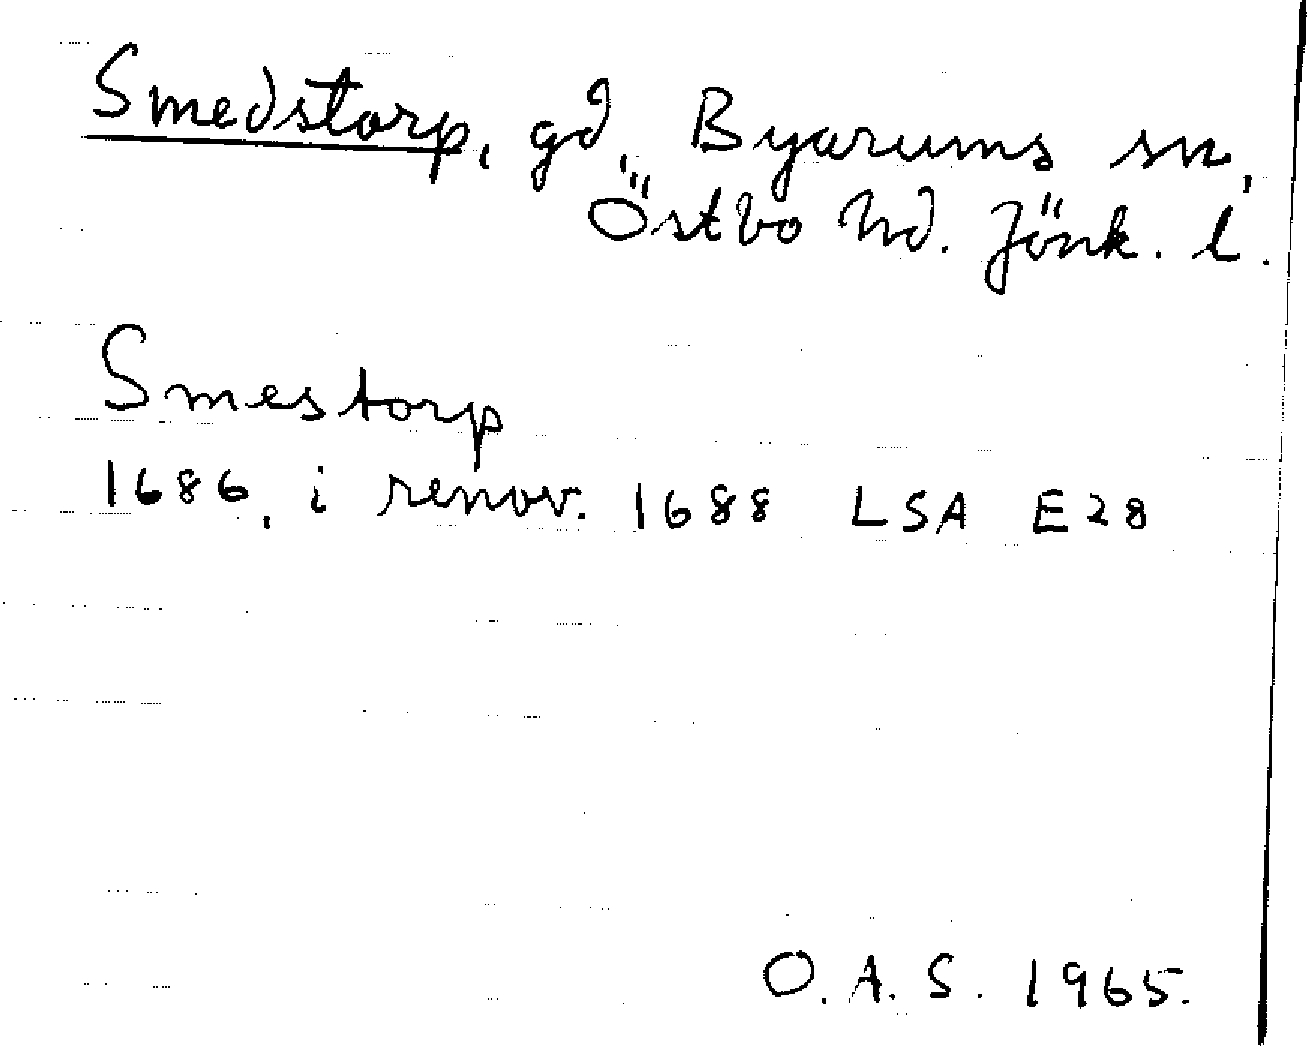 Smedstorp, gd, Byarums sn,
Östbo hd. Jönk. l.
Smestorp
1686, i renov. 1688 LSA E28
O. A. S. 1965.